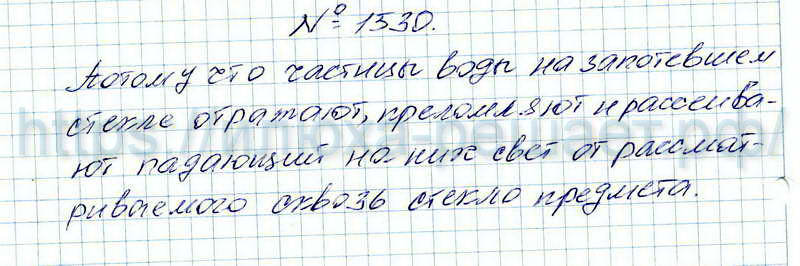 № 1530.
Потому что частицы воды на запотевшем
стекле отражают, преломляют и рассеива-
ют падающий на них свет от рассмат-
риваемого сквозь стекло предмета.